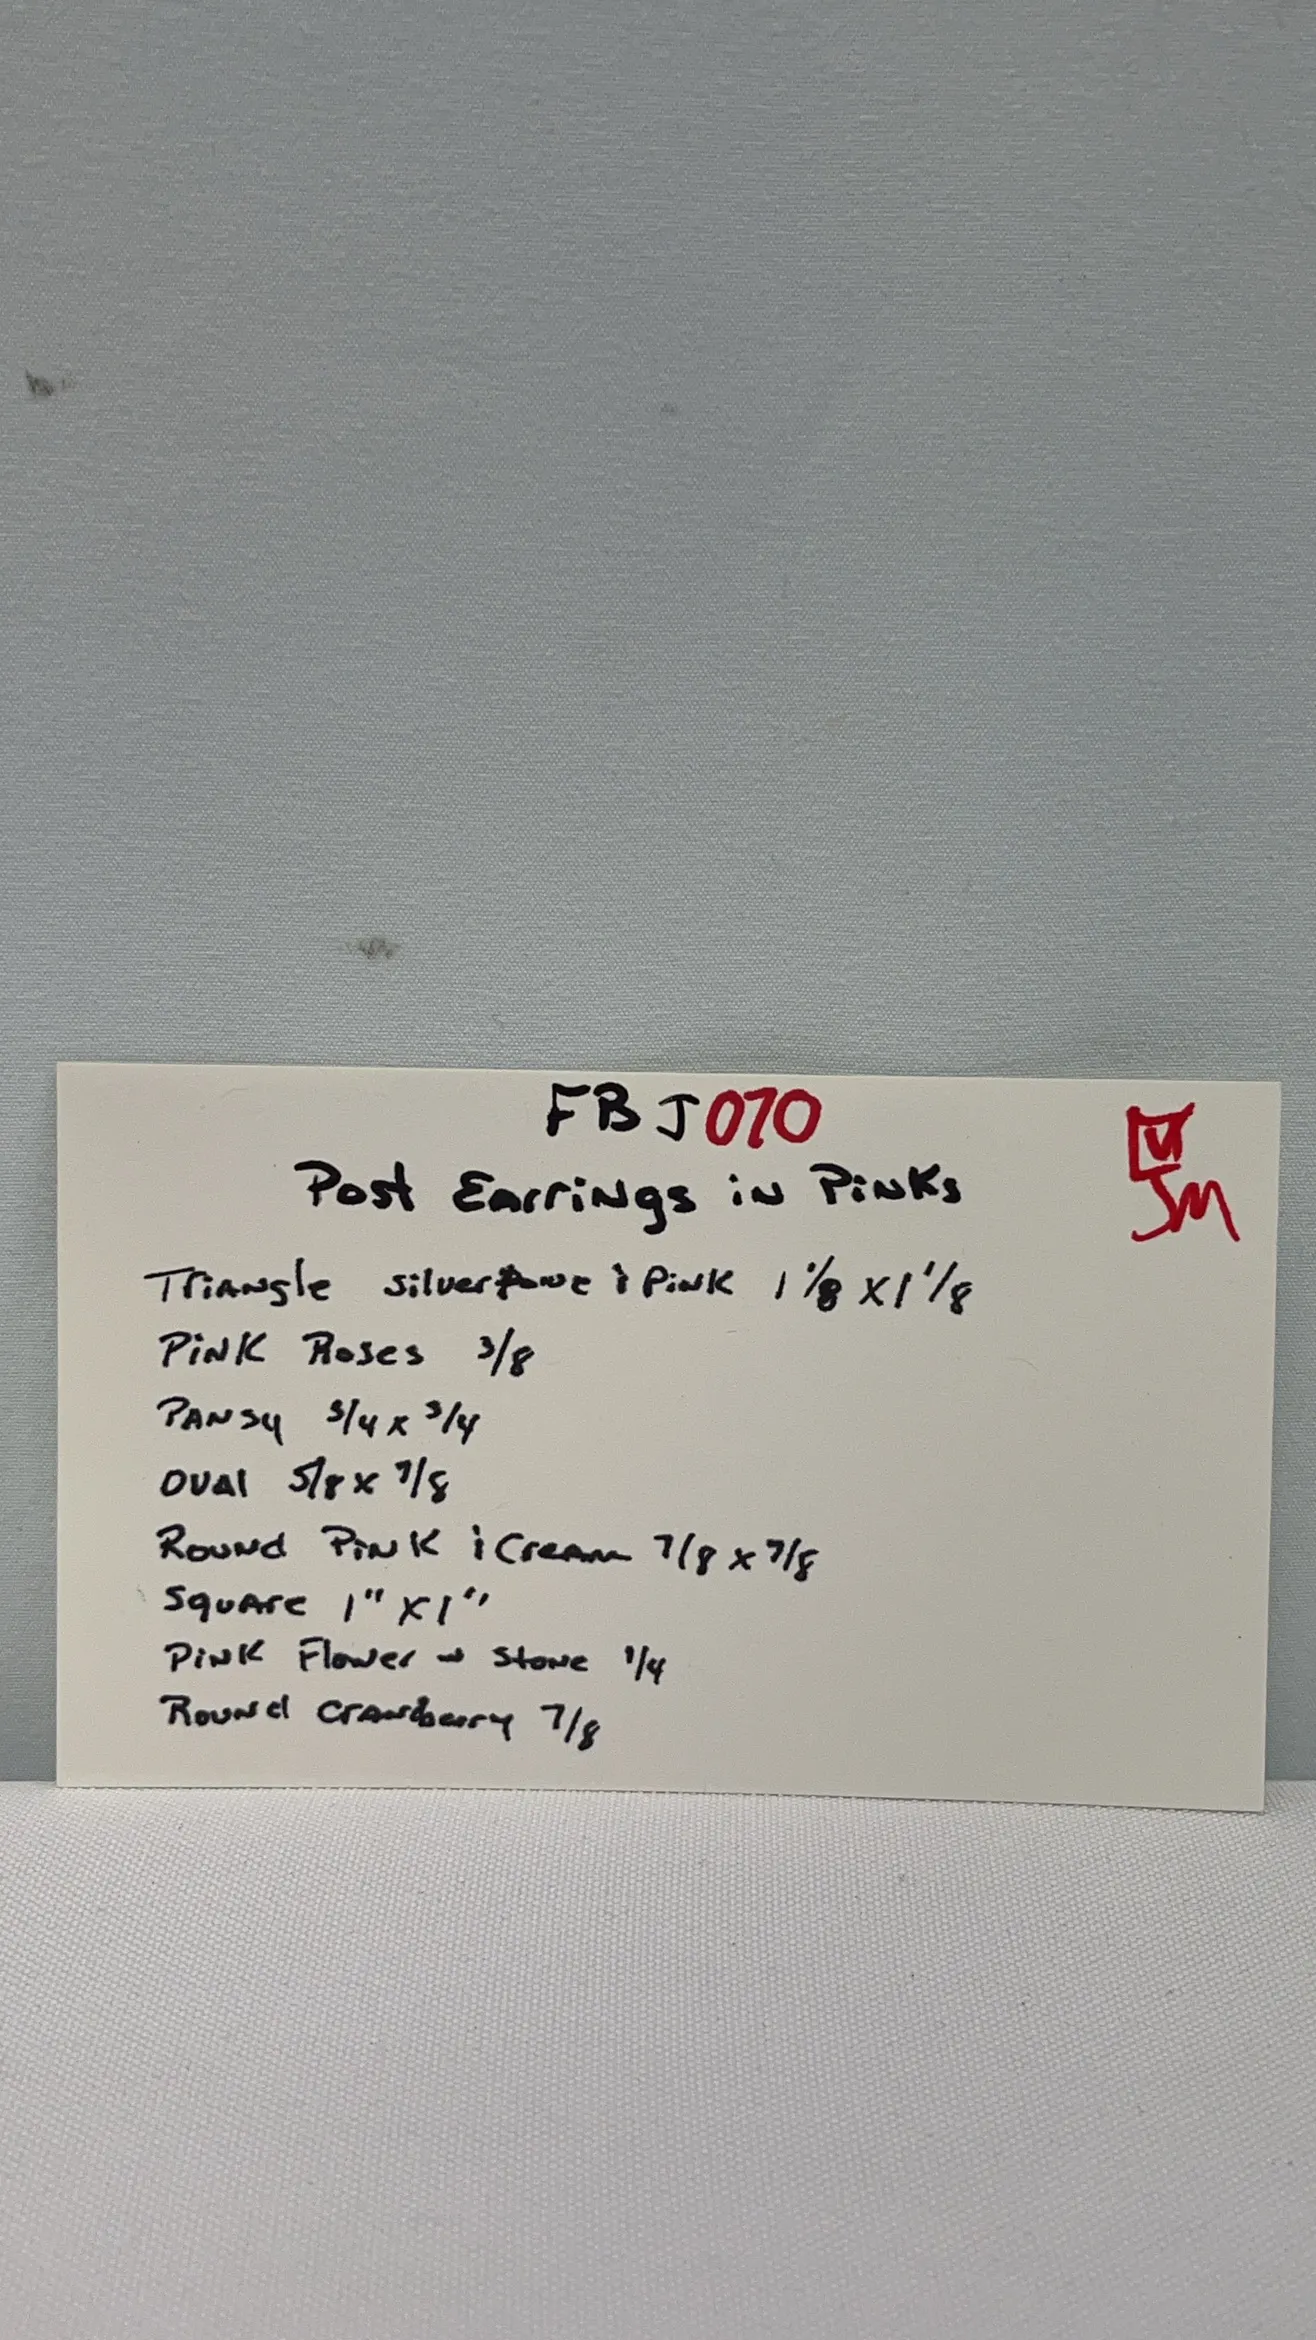 FBJ070
Post Earrings in Pinks
JM
Triangle silvertone & Pink 1 1/8 X 1 1/8
Pink Roses 3/8
Pansy 3/4 x 3/4
Oval 5/8 x 7/8
Round Pink & Cream 7/8 x 7/8
Square 1" X 1"
Pink Flower w Stone 1/4
Round Cranberry 7/8